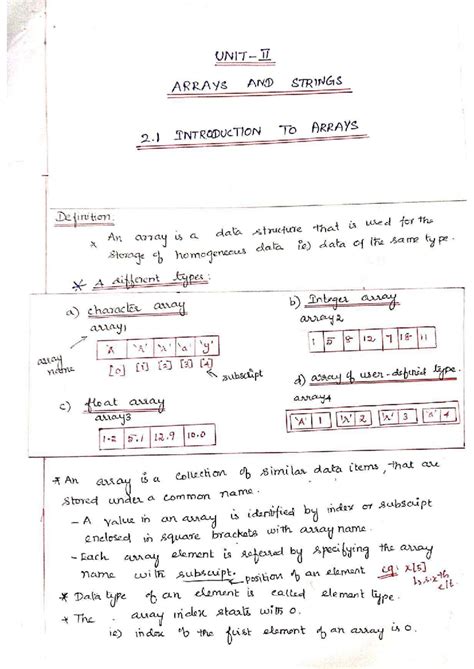 UNIT-II
ARRAYS AND STRINGS
2.1 INTRODUCTION TO ARRAYS
Definition:
* An array is a data structure that is used for the
storage of homogeneous data ie) data of the same type.
* A different types:
a) character array
array1
'A' 'r' 'r' 'a' 'y'
[0] [1] [2] [3] [4]
array name
subscript
b) Integer array
array2
1 5 8 12 7 18 11
c) float array
array3
1.2 5.1 12.9 10.0
d) array of user-defined type.
array4
'A' 1 'r' 2 'r' 3 'a' 4
* An array is a collection of similar data items, that are
stored under a common name.
- A value in an array is identified by index or subscript
enclosed in square brackets with array name.
- Each array element is referred by specifying the array
name with subscript. position of an element eg: x[5]
* Data type of an element is called element type.
* The array index starts with 0.
ie) index of the first element of an array is 0.